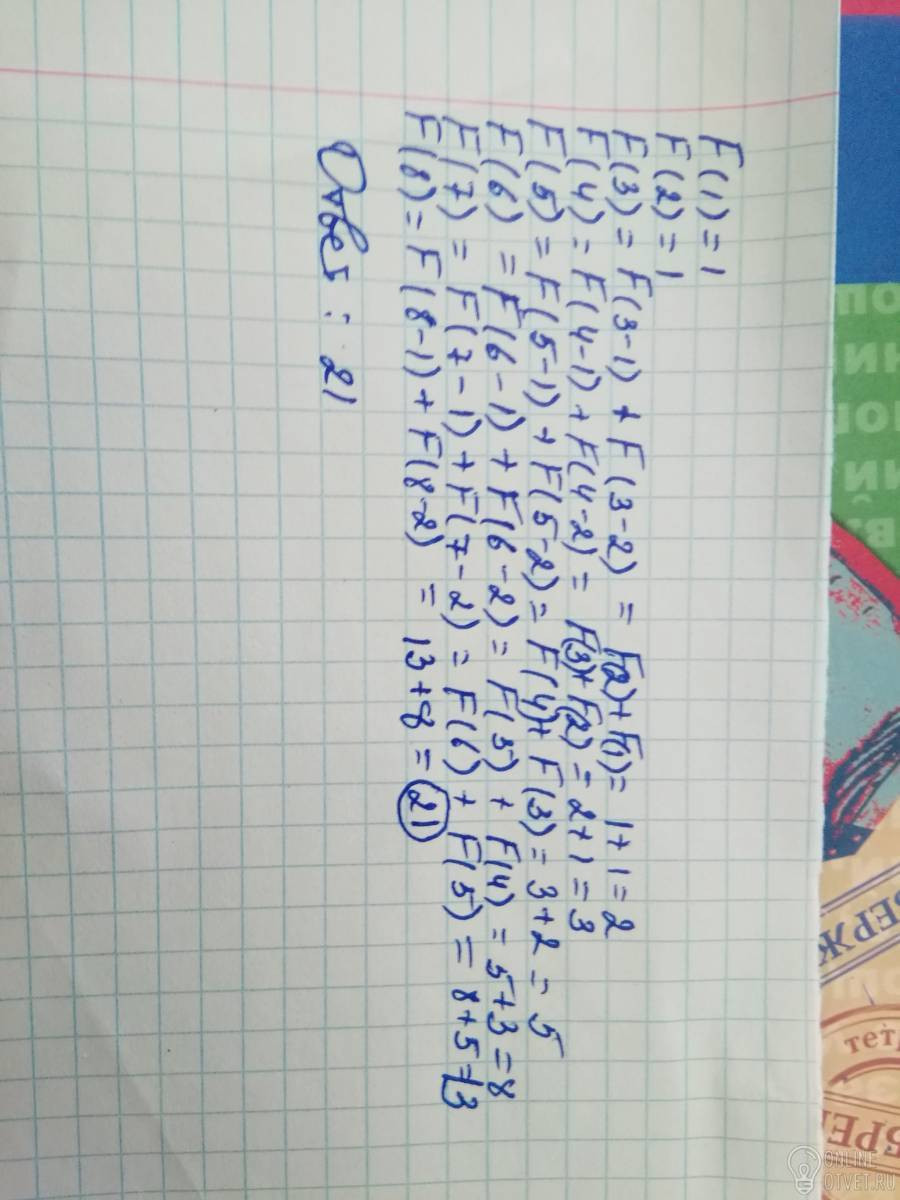 F(1)=1
F(2)=1
F(3)= F(3-1) + F(3-2) = F(2)+F(1)= 1+1=2
F(4)= F(4-1)+F(4-2)= F(3)+F(2)=2+1=3
F(5)=F(5-1)+F(5-2)=F(4)+F(3)=3+2=5
F(6) =F(6-1)+F(6-2)=F(5)+F(4)=5+3=8
F(7) = F(7-1)+F(7-2)=F(6)+F(5)=8+5=13
F(8)=F(8-1)+F(8-2) = 13+8=21
Ответ : 21
ТЕТ
ONLINE
OTVET.RU